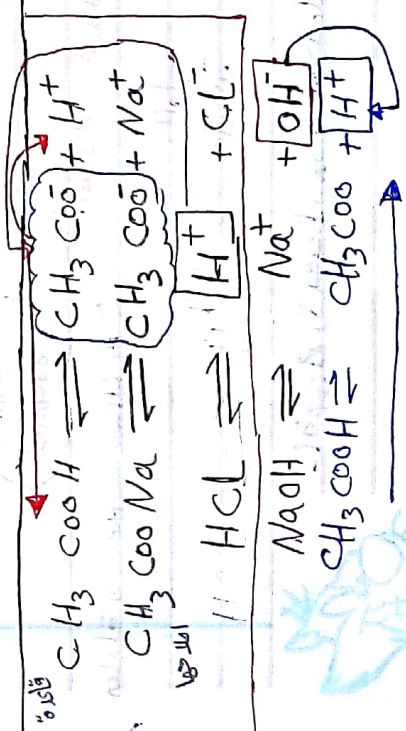 CH₃ COO H ⇌ CH₃ COO⁻ + H⁺
CH₃ COO Na ⇌ CH₃ COO⁻ + Na⁺
HCL ⇌ H⁺ + CL⁻
NaOH ⇌ Na⁺ + OH⁻
CH₃ COOH ⇌ CH₃ COO + H⁺